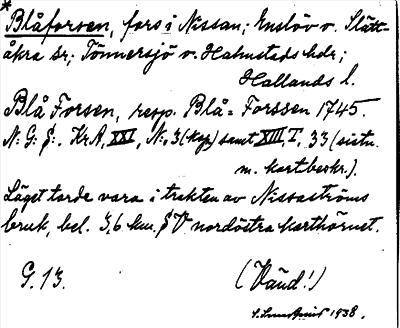 *Blåforsen, fors i Nissan; Enslöv o. Slätt-
åkra sr; Tönnersjö o. Halmstads hdr;
Hallands l.
Blå Forsen, resp. Blå=Forssen 1745.
N: G: S:. Kr A, XXI, N:o 3 (kop) samt XIII, I, 33 (
m. kartbeskr.).
Läget torde vara i trakten av Nissaströms
bruk, bel. 3,6 km. SV nordöstra karthörnet.
G. 13.
(Vänd!)
1938.